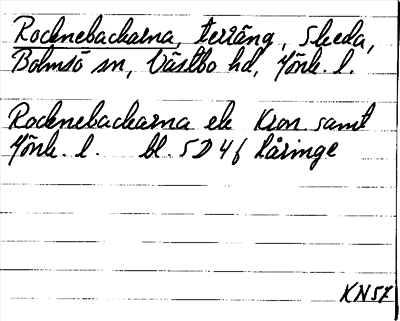 Rocknebackarna, terräng, Skeda,
Bolmsö sn, Västbo hd, Jönk. l.
Rocknebackarna ek Kron. samt
Jönk. l. bl. 5D4f Kåringe
KN57